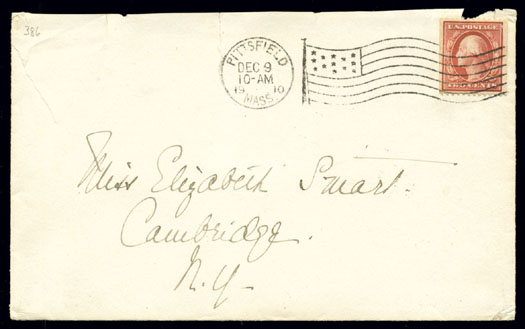 386
PITTSFIELD
DEC 9
10-AM
19 10
MASS.
U.S. POSTAGE
TWO CENTS
Miss Elizabeth Smart.
Cambridge.
N.Y.